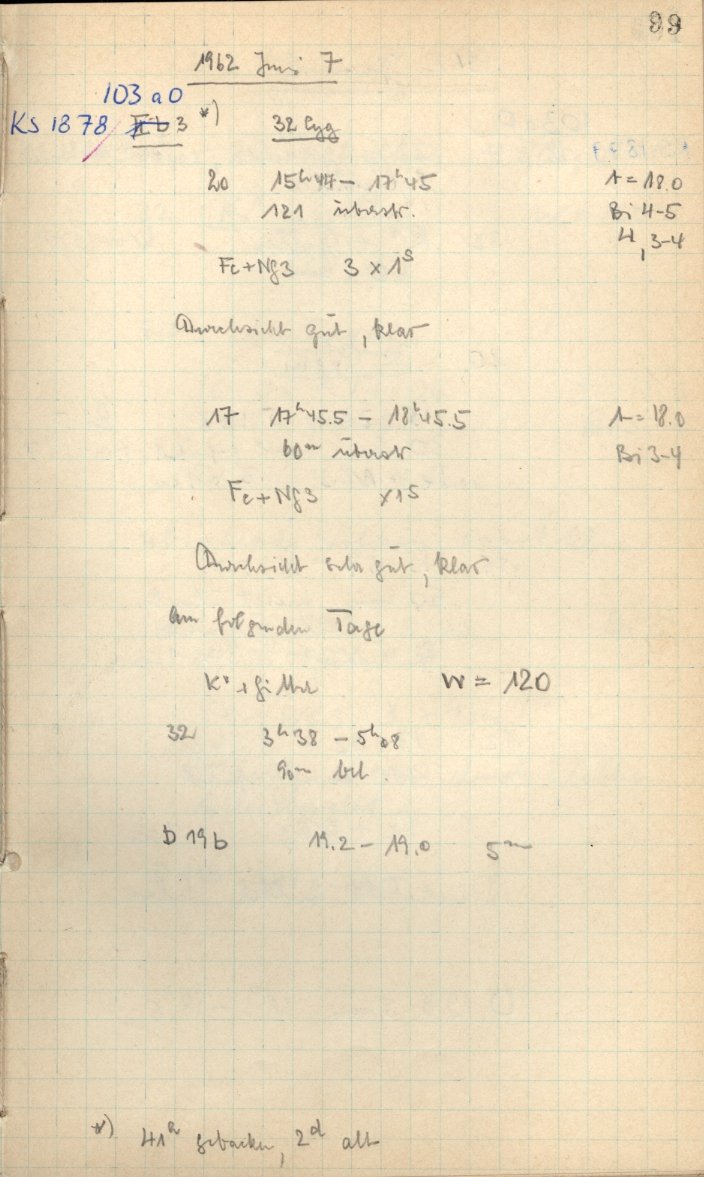 99
1962 Juni 7
103 a0
KS 1878 3 *) 32 Cyg
20 15h44 – 17h45 t = 18.0
121 überstr. Bi 4-5
4, 3-4
Fe+Ng3 3 x 1s
Durchsicht gut, klar
17 17h45.5 – 18h45.5 t = 18.0
60m überstr Bi 3-4
Fe+Ng3 x1s
Durchsicht sehr gut, klar
Am folgenden Tage
+ Gitter W = 120
32 3h38 – 5h08
90m bel.
D 19b 19.2 – 19.0 5m
*) 41h gebacken, 2d alt